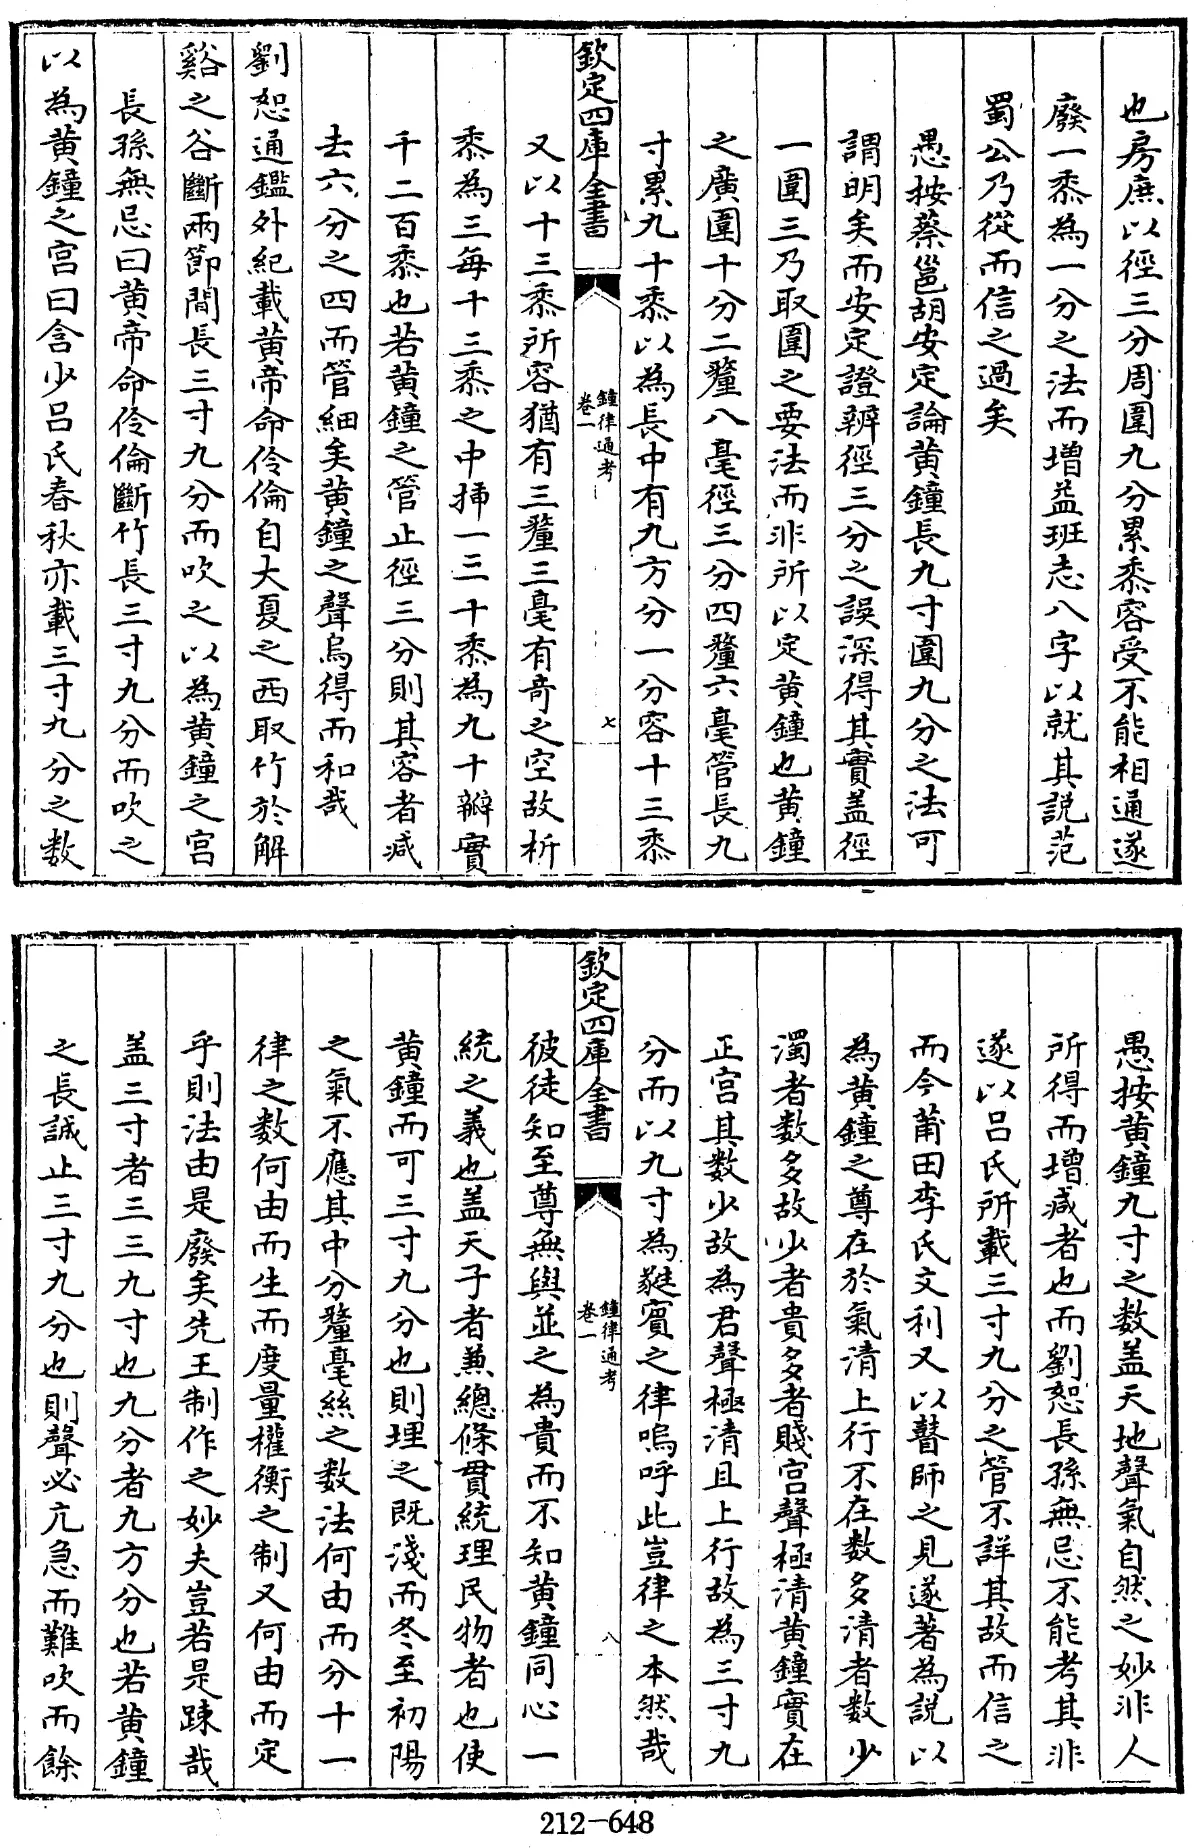 也房庶以徑三分周圍九分累黍容受不能相通遂
廢一黍為一分之法而增益班志八字以就其説范
蜀公乃從而信之過矣
愚按蔡邕胡安定論黄鐘長九寸圍九分之法可
謂明矣而安定證辨徑三分之誤深得其實盖徑
一圍三乃取圍之要法而非所以定黄鐘也黄鐘
之廣圍十分二釐八毫徑三分四釐六毫管長九
寸累九十黍以為長中有九方分一分容十三黍
欽定四庫全書
鐘律通考
卷一
七
又以十三黍所容猶有三釐三毫有竒之空故析
黍為三每十三黍之中挿一三十黍為九十瓣實
千二百黍也若黄鐘之管止徑三分則其容者减
去六分之四而管細矣黄鐘之聲烏得而和哉
劉恕通鑑外紀載黄帝命伶倫自大夏之西取竹於解
谿之谷斷兩節間長三寸九分而吹之以為黄鐘之宫
長孫無忌曰黄帝命伶倫斷竹長三寸九分而吹之
以為黄鐘之宫曰含少吕氏春秋亦載三寸九分之數
愚按黄鐘九寸之數盖天地聲氣自然之妙非人
所得而增减者也而劉恕長孫無忌不能考其非
遂以吕氏所載三寸九分之管不詳其故而信之
而今莆田李氏文利又以瞽師之見遂著為説以
為黄鐘之尊在於氣清上行不在數多清者數少
濁者數多故少者貴多者賤宫聲極清黄鐘實在
正宫其數少故為君聲極清且上行故為三寸九
分而以九寸為蕤賔之律嗚呼此豈律之本然哉
欽定四庫全書
鐘律通考
卷一
八
彼徒知至尊無與並之為貴而不知黄鐘同心一
統之義也盖天子者兼總條貫統理民物者也使
黄鐘而可三寸九分也則埋之既淺而冬至初陽
之氣不應其中分釐毫絲之數法何由而分十一
律之數何由而生而度量權衡之制又何由而定
乎則法由是廢矣先王制作之妙夫豈若是踈哉
盖三寸者三三九寸也九分者九方分也若黄鐘
之長誠止三寸九分也則聲必亢急而難吹而餘
212-648